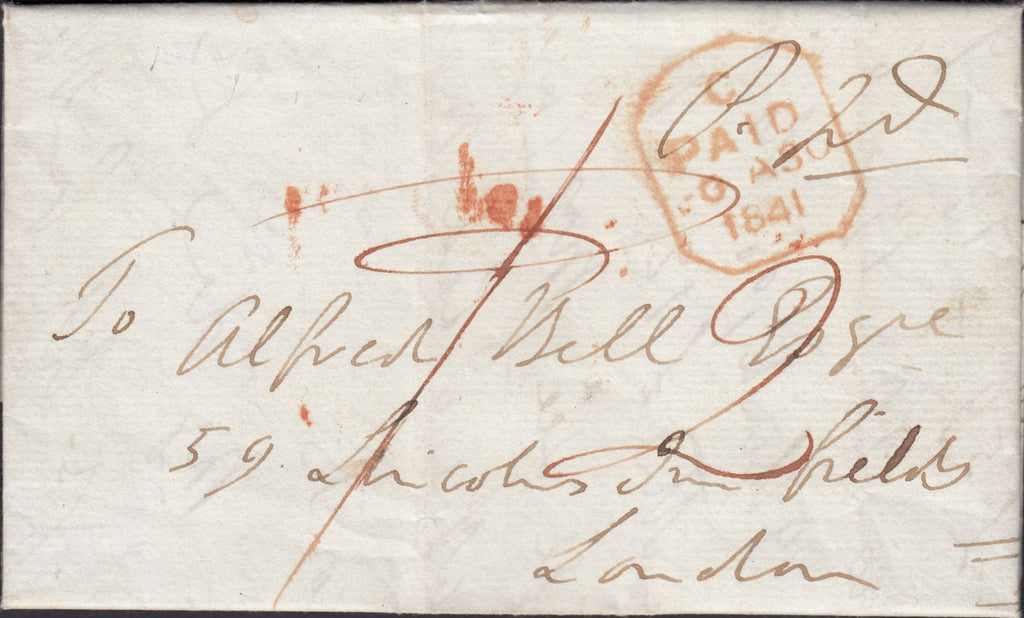 Paid
C
PAID
6 AU
1841
To
Alfred Bell Esqre
59 Lincolns Inn fields
London